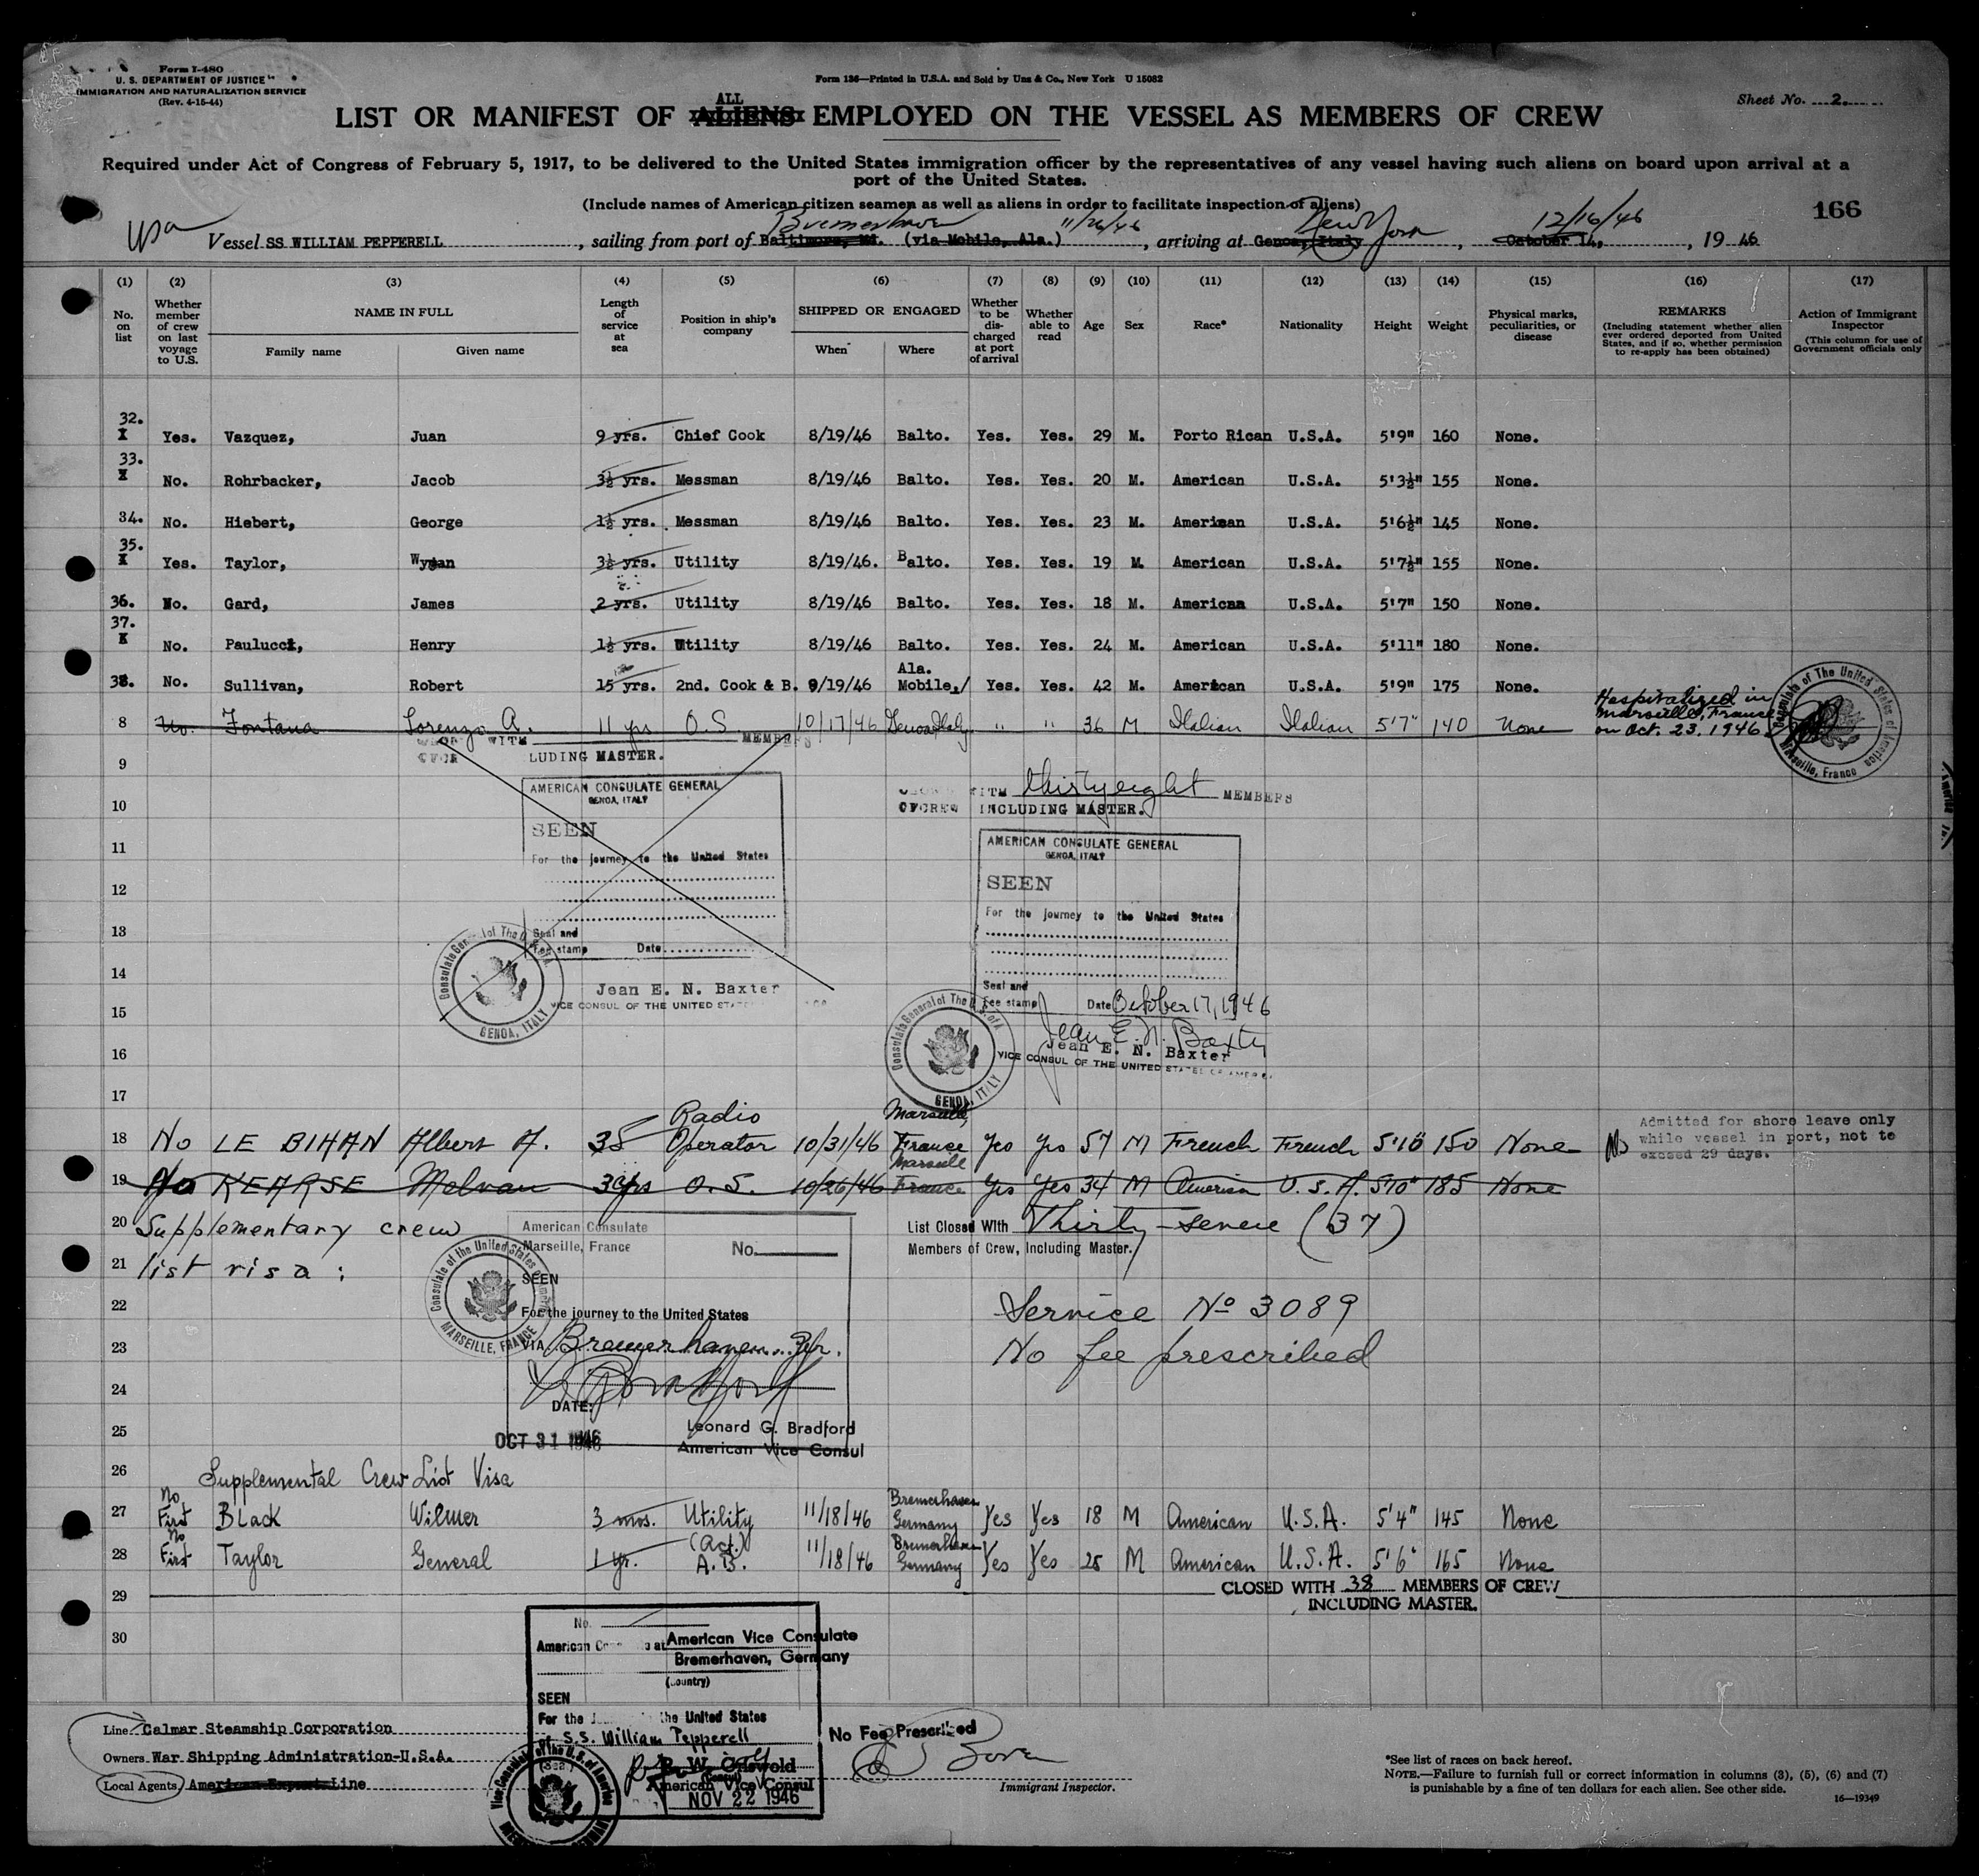 Form I-480
U. S. DEPARTMENT OF JUSTICE
IMMIGRATION AND NATURALIZATION SERVICE
(Rev. 4-15-44)
Form 136—Printed in U.S.A. and Sold by Unz & Co., New York U 15082
Sheet No. 2.
ALL
LIST OR MANIFEST OF ALIENS EMPLOYED ON THE VESSEL AS MEMBERS OF CREW
Required under Act of Congress of February 5, 1917, to be delivered to the United States immigration officer by the representatives of any vessel having such aliens on board upon arrival at a
port of the United States.
(Include names of American citizen seamen as well as aliens in order to facilitate inspection of aliens)
166
Bremerhaven 11/26/46 New York 12/16/46
Vessel SS WILLIAM PEPPERELL, sailing from port of Baltimore, Md. (via Mobile, Ala.), arriving at Genoa, Italy, October 14, 1946
(1) (2) (3) (4) (5) (6) (7) (8) (9) (10) (11) (12) (13) (14) (15) (16) (17)
No. on list
Whether member of crew on last voyage to U.S.
NAME IN FULL
Family name
Given name
Length of service at sea
Position in ship's company
SHIPPED OR ENGAGED
When
Where
Whether to be discharged at port of arrival
Whether able to read
Age
Sex
Race*
Nationality
Height
Weight
Physical marks, peculiarities, or disease
REMARKS
(Including statement whether alien ever ordered deported from United States, and if so, whether permission to re-apply has been obtained)
Action of Immigrant Inspector
(This column for use of Government officials only
32. Yes. Vazquez, Juan 9 yrs. Chief Cook 8/19/46 Balto. Yes. Yes. 29 M. Porto Rican U.S.A. 5'9" 160 None.
33. No. Rohrbacker, Jacob 3½ yrs. Messman 8/19/46 Balto. Yes. Yes. 20 M. American U.S.A. 5'3½" 155 None.
34. No. Hiebert, George 1½ yrs. Messman 8/19/46 Balto. Yes. Yes. 23 M. American U.S.A. 5'6½" 145 None.
35. Yes. Taylor, 3½ yrs. Utility 8/19/46. Balto. Yes. Yes. 19 M. American U.S.A. 5'7½" 155 None.
36. No. Gard, James 2 yrs. Utility 8/19/46 Balto. Yes. Yes. 18 M. American U.S.A. 5'7" 150 None.
37. No. Paulucci, Henry 1½ yrs. Utility 8/19/46 Balto. Yes. Yes. 24 M. American U.S.A. 5'11" 180 None.
38. No. Sullivan, Robert 15 yrs. 2nd. Cook & B. 9/19/46 Mobile, Ala. Yes. Yes. 42 M. American U.S.A. 5'9" 175 None.
8 No. Fontana Lorenzo A. 11 yrs O.S. 10/17/46 Genoa Italy " " 36 M Italian Italian 5'7" 140 None
Hospitalized in
Marseille, France
on Oct. 23, 1946
Consulate of The United States of America
Marseille, France
WITH MEMBERS
LUDING MASTER.
AMERICAN CONSULATE GENERAL
GENOA, ITALY
SEEN
For the journey to the United States
Seal and
Fee stamp Date
Jean E. N. Baxter
VICE CONSUL OF THE UNITED
GENOA, ITALY
WITH thirty eight MEMBERS
OF CREW INCLUDING MASTER.
AMERICAN CONSULATE GENERAL
GENOA, ITALY
SEEN
For the journey to the United States
Seal and
Fee stamp Date October 17, 1946
Jean E. N. Baxter
Jean E. N. Baxter
VICE CONSUL OF THE UNITED STATES OF AMERICA
Consulate General of The U.S. of A
GENOA, ITALY
9
10
11
12
13
14
15
16
17
18 No LE BIHAN Albert A. 38 Radio Operator 10/31/46 Marseille, France Yes Yes 57 M French French 5'10 150 None
Admitted for shore leave only
while vessel in port, not to
exceed 29 days.
19 No KEARSE Melvan 3 yrs O.S. 10/26/46 Marseille France Yes Yes 34 M American U.S.A. 5'10" 185 None
20 Supplementary crew
21 list visa:
American Consulate
Marseille, France No.
SEEN
For the journey to the United States
VIA Bremerhaven
DATE:
OCT 31 1946
Leonard G. Bradford
American Vice Consul
Consulate of the United States of America
MARSEILLE, FRANCE
List Closed With Thirty-seven (37)
Members of Crew, Including Master.
Service No 3089
No fee prescribed
22
23
24
25
26 Supplemental Crew List Visa
27 No First Black Wilmer 3 mos. Utility 11/18/46 Bremerhaven Germany Yes Yes 18 M American U.S.A. 5'4" 145 None
28 No First Taylor General 1 yr. (Act.) A.B. 11/18/46 Bremerhaven Germany Yes Yes 25 M American U.S.A. 5'6" 165 None
29 CLOSED WITH 38 MEMBERS OF CREW
INCLUDING MASTER.
30
No.
American at American Vice Consulate
Bremerhaven, Germany
(Country)
SEEN
For the the United States
S.S. William Pepperell
R. W. Griswold
American Vice Consul
NOV 22 1946
Vice Consulate of the U.S. of America
No Fee Prescribed
Immigrant Inspector.
Line Calmar Steamship Corporation
Owners War Shipping Administration-U.S.A.
Local Agents American Export Line
*See list of races on back hereof.
NOTE.—Failure to furnish full or correct information in columns (3), (5), (6) and (7)
is punishable by a fine of ten dollars for each alien. See other side.
16—19349